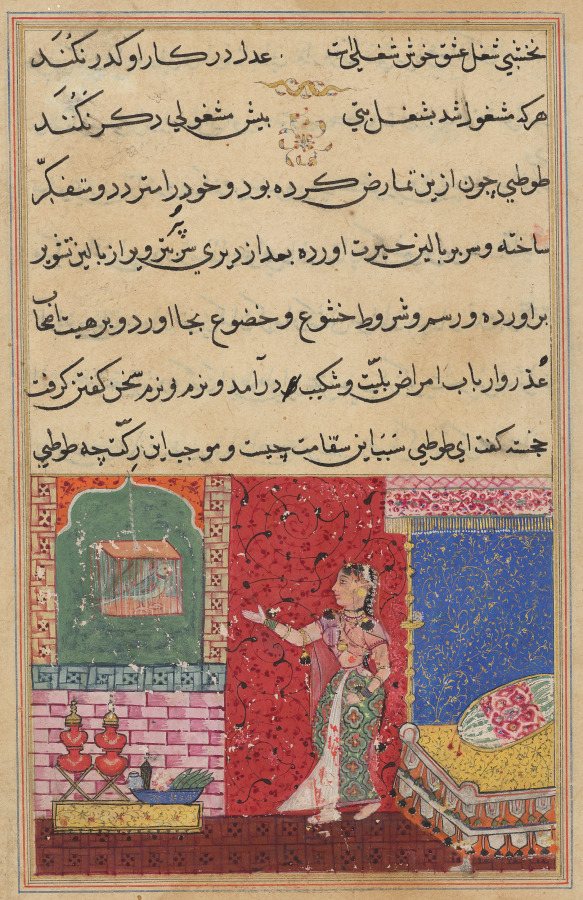 نخشبی شغل عشق خوش شغلی است عدل در کار او کدر نکند
هرکه مشغول شد بشغل بتی بیش مشغولی دکر نکند
طوطی چون ازین تمارض کرده بود و خود را متردد و متفکر
ساخته و سر بر بالین حیرت اورده بعد از دیری سر بر از بالین
براورده و رسم و شروط خشوع و خضوع بجا اورد و بر هیئت اصحاب
عذر وارباب امراض و شکیب درآمد و نرم و نرم سخن کفتن کرفت
خجسته کفت ای طوطی سبب این سقامت چیست و موجب این رکت چه طوطی